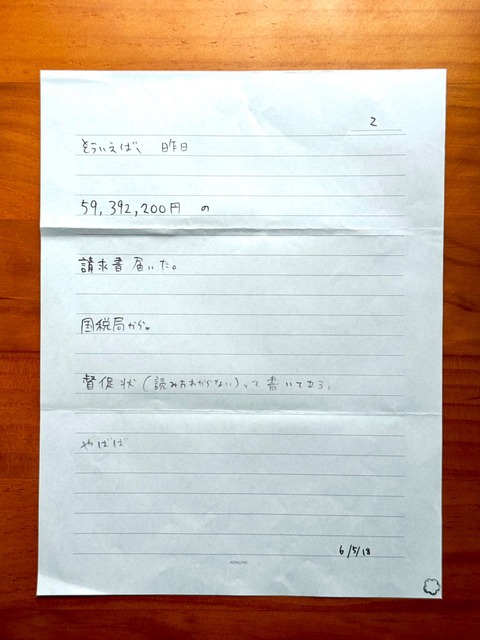 2
そういえば、昨日
59,392,200円 の
請求書届いた。
国税局から。
督促状(読み方わからない)って書いてある。
やばば
6/5/18
KOKUYO